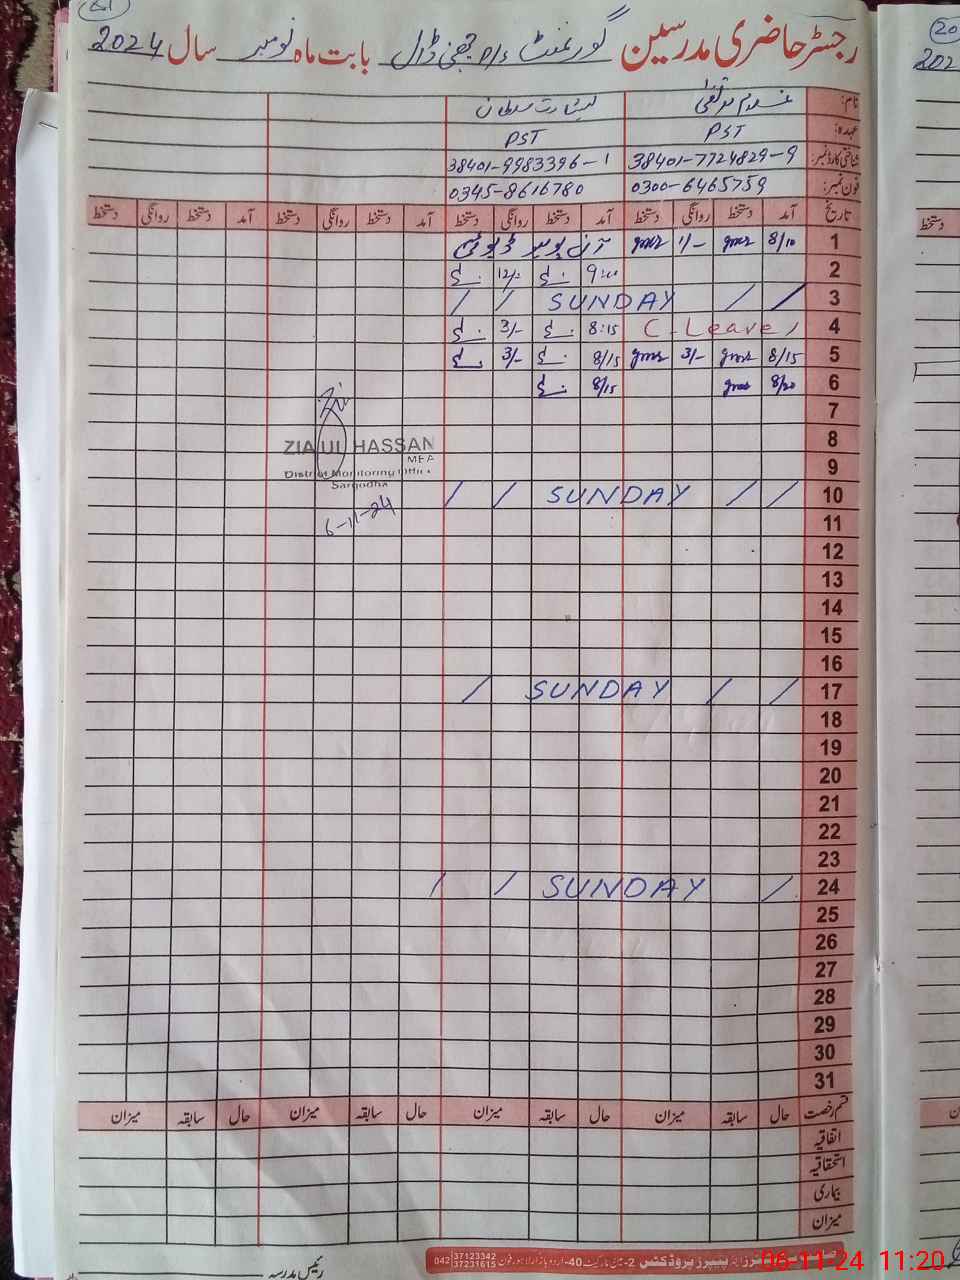 رجسٹر حاضری مدرسین گورنمنٹ بابت ماہ نومبر سال 2024
نام: غلام مرتضٰی بشارت سلطان
عہدہ: PST PST
شناختی کارڈ نمبر: 38401-7724829-9 38401-9983396-1
فون نمبر: 0300-6465759 0345-8616780
تاریخ آمد دستخط روانگی دستخط آمد دستخط روانگی دستخط آمد دستخط روانگی دستخط آمد دستخط روانگی دستخط
1 8/10 1/- ڈیوٹی
2 9:00 12/-
3 / / SUNDAY / /
4 C-Leave / 8:15 3/-
5 8/15 3/- 8/15 3/-
6 8/20 8/15
7
8
ZIA UL HASSAN
MEA
9
District Monitoring Office
Sargodha
10 / / SUNDAY / /
6-11-24
11
12
13
14
15
16
17 / / SUNDAY /
18
19
20
21
22
23
24 / SUNDAY / /
25
26
27
28
29
30
31
قسم رخصت حال سابقہ میزان حال سابقہ میزان حال سابقہ میزان حال سابقہ میزان
اتفاقیہ
استحقاقیہ
بیماری
میزان
رئیس مدرسہ
پیپرز پروڈکٹس 2- 40-اردو بازار لاہور فون 042 37123342 37231615
06-11-24 11:20
20
202
دستخط